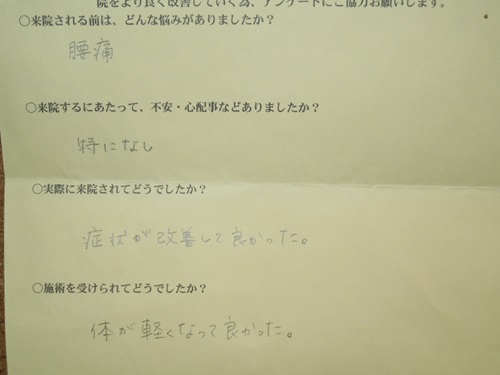 院をより良く改善していく為、アンケートにご協力お願いします。
○来院される前は、どんな悩みがありましたか？
腰痛
○来院するにあたって、不安・心配事などありましたか？
特になし
○実際に来院されてどうでしたか？
症状が改善して良かった。
○施術を受けられてどうでしたか？
体が軽くなって良かった。